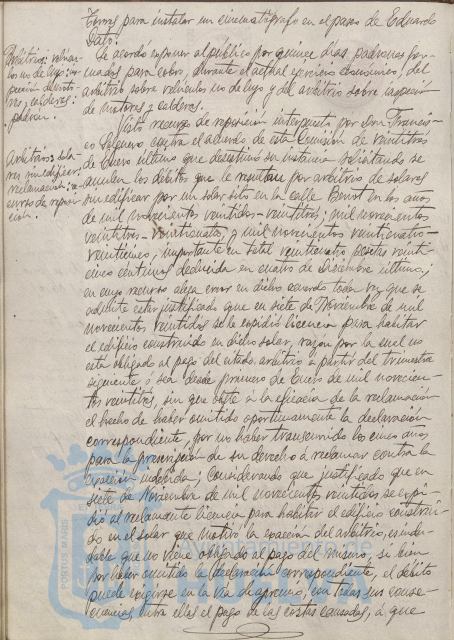 Ferras para instalar un cinematógrafo en el paseo de Eduardo
Dato.
Arbitrios: vehícu-
los no de lujo: ins-
pección de moto-
res y calderas:
padrón.
Se acordó exponer al público por quince días padrones for-
mados para cobro, durante el actual ejercicio económico, del
arbitrio sobre vehículos no de lujo y del arbitrio sobre inspección
de motores y calderas.
Arbitrios: sola-
res sin edificar:
reclamación: re-
curso de reposi-
ción.
Visto recurso de reposición interpuesto por Don Francis-
co contra el acuerdo de esta Comisión de veintitrés
de Enero último que desestimó su instancia solicitando se
anulen los débitos que le resultan por arbitrio de solares
sin edificar por un solar sito en la calle Benot en los años
de mil novecientos veintidós-veintitrés, mil novecientos
veintitrés-veinticuatro, y mil novecientos veinticuatro-
veinticinco, importante en total veinticuatro pesetas veinti-
cinco céntimos deducida en cuatro de Diciembre último;
en cuyo recurso alega error en dicho acuerdo toda vez que se
admite está justificado que en siete de Noviembre de mil
novecientos veintidós se le expidió licencia para habitar
el edificio construido en dicho solar, razón por la cual no
está obligado al pago del citado arbitrio a partir del trimestre
siguiente o sea desde primero de Enero de mil novecien-
tos veintitrés, sin que obste a la eficacia de la reclamación
el hecho de haber omitido oportunamente la declaración
correspondiente, por no haber transcurrido los cinco años
para la prescripción de su derecho a reclamar contra la
exacción indebida; Considerando que justificado que en
siete de Noviembre de mil novecientos veintidós se expi-
dió al reclamante licencia para habitar el edificio construi-
do en el solar que motivó la exacción del arbitrio, es indu-
dable que no viene obligado al pago del mismo, si bien
por haber omitido la declaración correspondiente, el débito
puede exigirse en la vía de apremio, con todas sus conse-
cuencias, entre ellas el pago de las costas causadas, a que
PORTUS MARIS
Ayuntamiento de